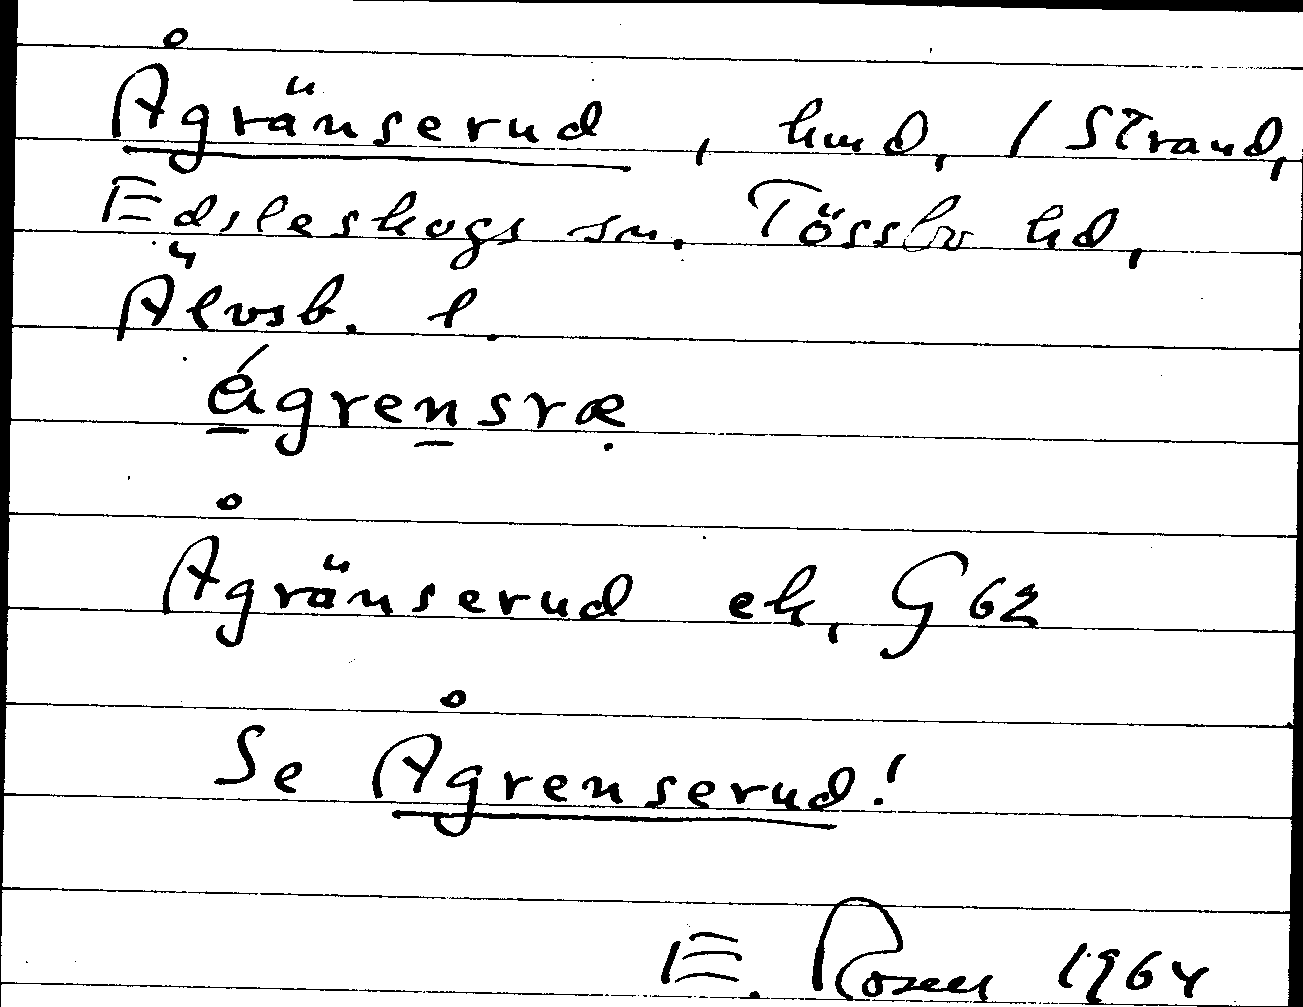 Ågränserud, hmd, / Strand,
Edsleskogs sn. Tössbo hd,
Älvsb. l.
ágrensræ
Ågränserud ek, G 62
Se Ågrenserud!
E. Rosen 1964